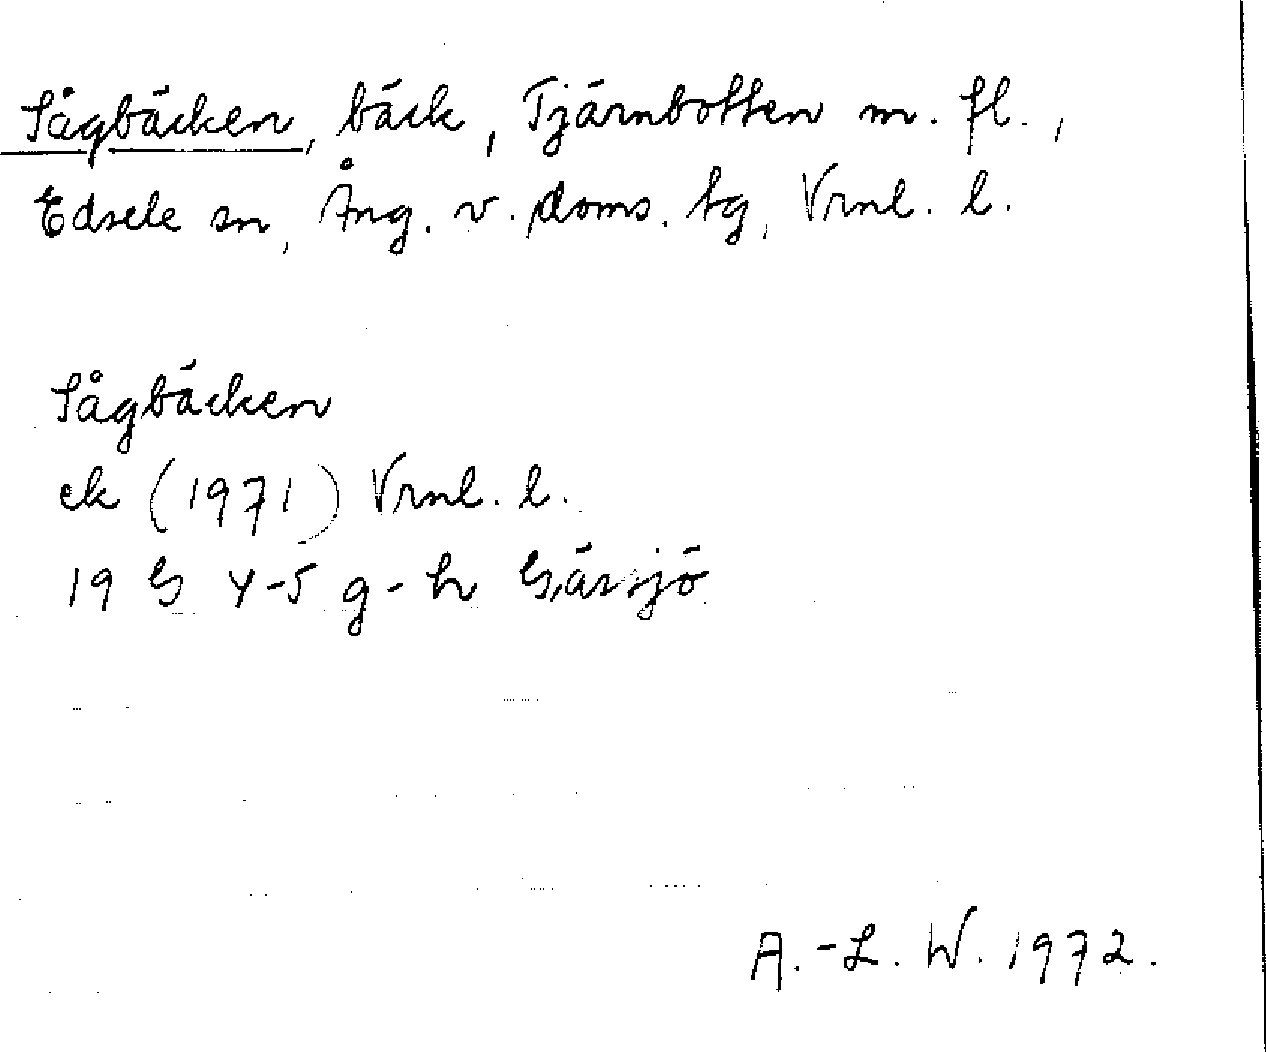 Sågbäcken, bäck, Tjärnbotten m. fl.,
Edsele sn, Ång. v. doms. tg, Vrnl. l.
Sågbäcken
ek (1971) Vrnl. l.
19 G 4-5 g-h Gårsjö
A.-L. W. 1972.